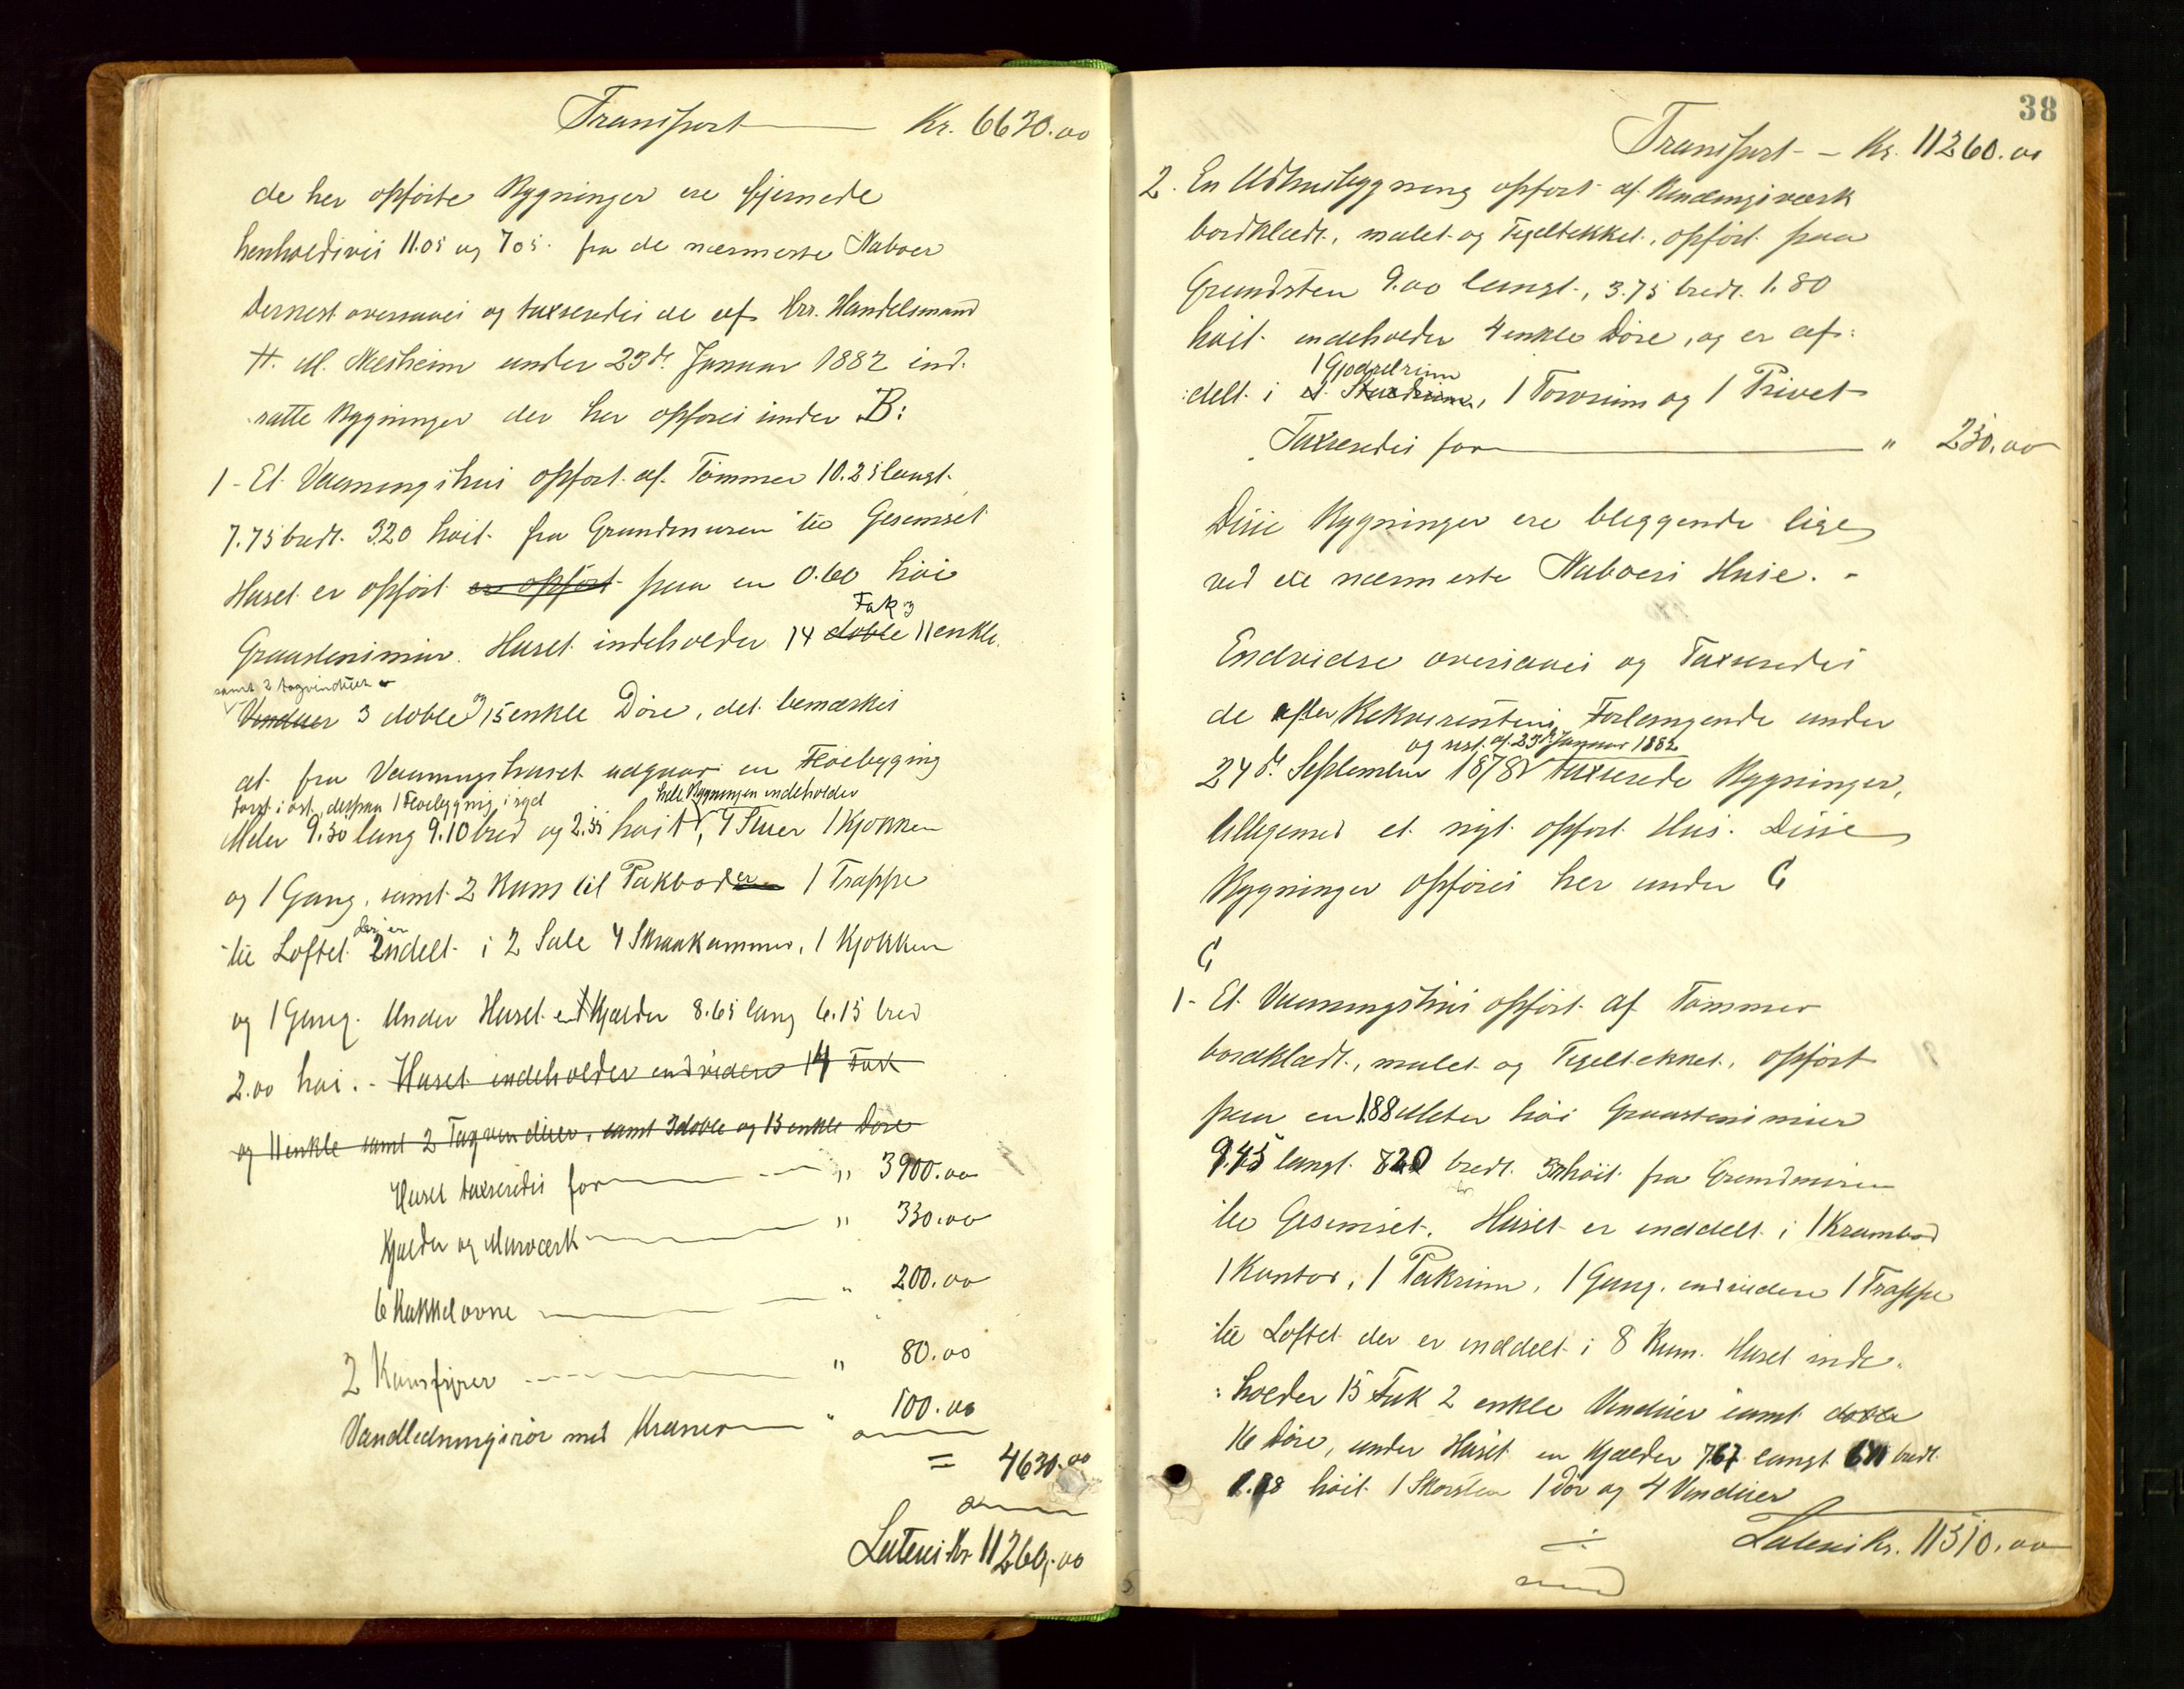 Transport Kr. 6630.00
de her opførte Bygninger ere fjernede
henholdsvis 11.05 og 7.05. fra de nærmeste Naboer
Dernest overssaaes og taxseredes de af Hrr. Handelsmand
H. M. Næsheim under 23de Januar 1882 ind-
satte Bygninger der her opføres under B:
1 - Et Vaaningshus opført af Tømmer 10.25 langt
7.75 bredt 3.20 høit fra Grundmuren til Gesemset
Huset er opført er opført paa en 0.60 høi
Fak 3
Graastensmur. Huset indeholder 14 doble 11 enkle
samt 2 Tagvinduer
Vinduer 3 doble og 15 enkle Døre, det bemærkes
at fra Vaaningshuset udgaar en Fløibygging
først i øst, desfra 1 Fløibygnig i syd
hele Bygningen indeholder
Meter 9.30 lang 9.10 bred og 2.35 høit, 4 Stuer 1 Kjøkken
og 1 Gang, samt 2 Rum til Pakboder 1 Trappe
der er
til Loftet Indelt i 2 Sale 4 Skraakammer, 1 Kjøkken
og 1 Gang. Under Huset en Kjælder 8.65 lang 6.15 bred
2.00 høi. - Huset indeholder endvidere 14 Fak
og 11 enkle samt 2 Tagvinduer, samt 3 doble og 15 enkle Døre
Huset taxseredes for " 3900.00
Kjælder og Murværk " 350.00
6 Kakkelovne " 200.00
2 Komfyrer " 80.00
Vandledningsrør med Kraner " 100.00
= 4630.00
Lateris Kr. 11260.00
38
Transport - Kr. 11260.00
2. En Udhusbygning opført af Bindingsværk
bordklædt, malet og Tegeltekket, opført paa
Grundsten 9.00 langt, 3.75 bredt 1.80
høit indeholder 4 enkle Døre, og er af:
1 Gjødselrum
:delt i 1 Torvrum og 1 Privet
Taxseredes for " 250.00
Disse Bygninger ere beliggende lige
ved de nærmeste Naboers Huse. -
Endvidre oversaaes og Taxseredes
de efter Rekvirentens Forlangende under
og rest. af 23de Januar 1882
24de September 1878 taxserede Bygninger,
tilligemed et nyt opført Hus. Disse
Bygninger opføres her under C
C
1 - Et Vaaningshus opført af Tømmer
bordklædt, malet og Tegeltekket, opført
paa en 1.88 Meter høi Graastensmur
9.45 langt 8.20 bredt høit fra Grundmuren
til Gesemset. Huset er inddelt i 1 Krambod
1 Kontor, 1 Pakrum, 1 Gang, endvidere 1 Trappe
til Loftet der er inddelt i 8 Rum. Huset inde-
:holder 15 Fak 2 enkle Vinduer samt doble
16 Døre, under Huset en Kjælder 7.67 langt bredt
høit 1 Skorsten 1 Dør og 4 Vinduer
Lateris Kr. 11510.00